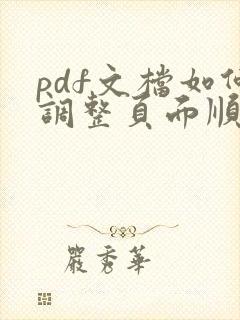 pdf文檔如何
調整頁面順
嚴秀華